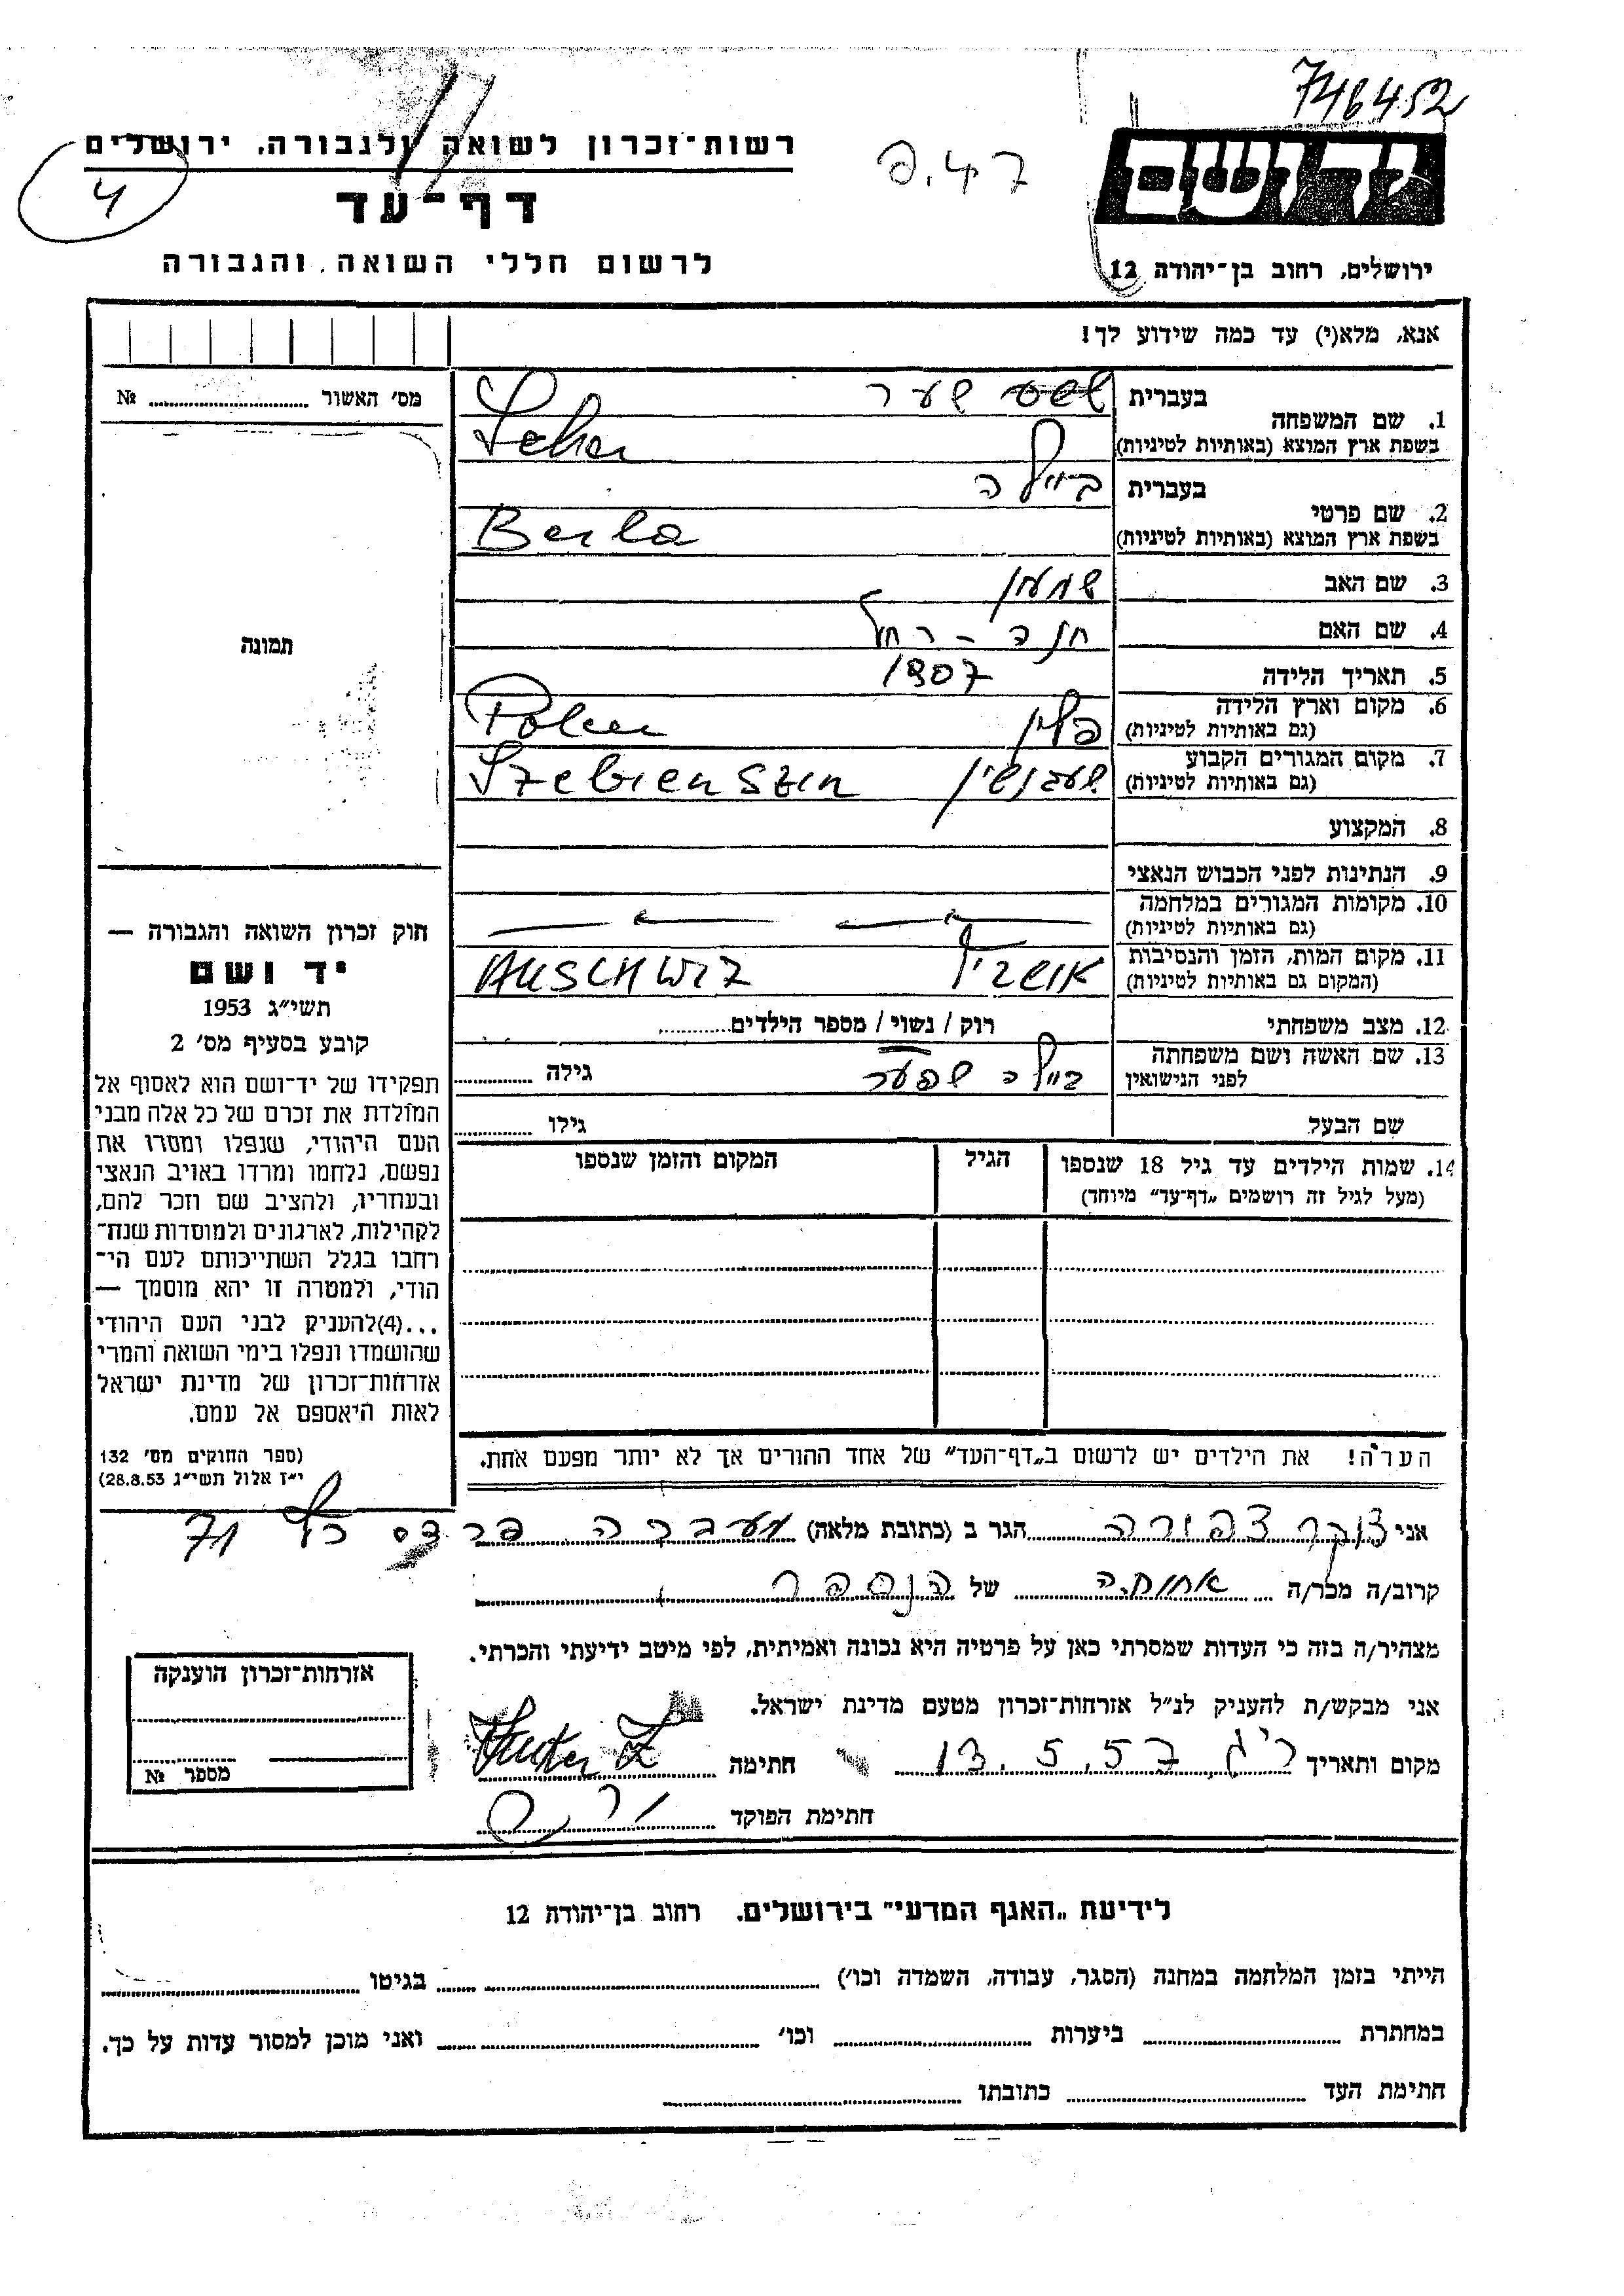 746452
רשות־זכרון לשואה ולגבורה, ירושלים
4
דף־עד
לרשום חללי השואה והגבורה
יד ושם
ירושלים, רחוב בן־יהודה 12
אנא, מלא(י) עד כמה שידוע לך!
מס׳ האשור № 
1. שם המשפחה בעברית שער
בשפת ארץ המוצא (באותיות לטיניות) Scher
2. שם פרטי בעברית ביילה
בשפת ארץ המוצא (באותיות לטיניות) Beila
תמונה
3. שם האב שמעון
4. שם האם חנה - רחל
5. תאריך הלידה 1907
6. מקום וארץ הלידה (גם באותיות לטיניות) פולין Polen
7. מקום המגורים הקבוע (גם באותיות לטיניות) שעבנשין Szebrenszin
8. המקצוע
9. הנתינות לפני הכבוש הנאצי
10. מקומות המגורים במלחמה (גם באותיות לטיניות)
11. מקום המות, הזמן והנסיבות (המקום גם באותיות לטיניות) אושביץ AUSCHWIZ
12. מצב משפחתי רוק / נשוי / מספר הילדים
13. שם האשה ושם משפחתה לפני הנישואין ביילה שפער גילה
שם הבעל גילו
14. שמות הילדים עד גיל 18 שנספו (מעל לגיל זה רושמים „דף־עד” מיוחד) הגיל המקום והזמן שנספו
הערה! את הילדים יש לרשום ב„דף־העד” של אחד ההורים אך לא יותר מפעם אחת.
חוק זכרון השואה והגבורה —
יד ושם
תשי״ג 1953
קובע בסעיף מס׳ 2
תפקידו של יד־ושם הוא לאסוף אל
המולדת את זכרם של כל אלה מבני
העם היהודי, שנפלו ומסרו את
נפשם, נלחמו ומרדו באויב הנאצי
ובעוזריו, ולהציב שם וזכר להם,
לקהילות, לארגונים ולמוסדות שנח־
רבו בגלל השתייכותם לעם הי־
הודי, ולמטרה זו יהא מוסמך —
...(4)להעניק לבני העם היהודי
שהושמדו ונפלו בימי השואה והמרי
אזרחות־זכרון של מדינת ישראל
לאות היאספם אל עמם.
(ספר החוקים מס׳ 132
י״ז אלול תשי״ג 28.8.53)
אני צוקר צפורה הגר ב (כתובת מלאה) מעברה פרדס כץ 71
קרוב/ה מכר/ה אחותה של הנספה
מצהיר/ה בזה כי העדות שמסרתי כאן על פרטיה היא נכונה ואמיתית, לפי מיטב ידיעתי והכרתי.
אני מבקש/ת להעניק לנ״ל אזרחות־זכרון מטעם מדינת ישראל.
מקום ותאריך 13.5.57 חתימה
חתימת הפוקד
אזרחות־זכרון הוענקה
מספר №
לידיעת „האגף המדעי” בירושלים. רחוב בן־יהודה 12
הייתי בזמן המלחמה במחנה (הסגר, עבודה, השמדה וכו׳) בגיטו
במחתרת ביערות וכו׳ ואני מוכן למסור עדות על כך.
חתימת העד כתובתו